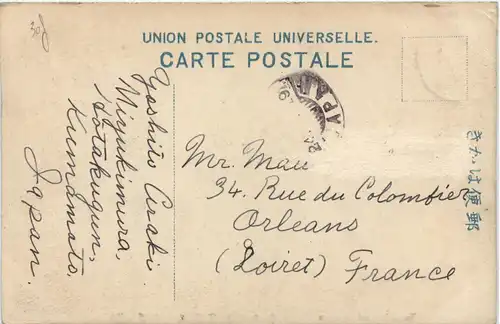 30
UNION POSTALE UNIVERSELLE.
CARTE POSTALE
Yoshito Araki.
Miyukimura,
Hotakugun,
Kumamoto,
Japan.
JAPAN
Mr. Mau
34. Rue du Colombier
Orleans
(Loiret) France
きかは便郵